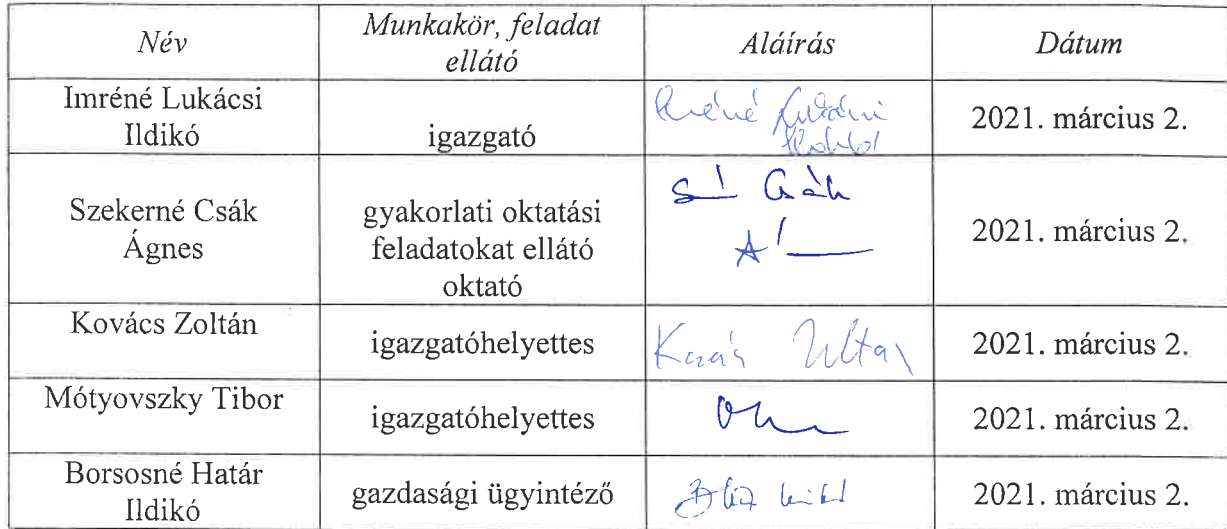 Név
Munkakör, feladat
ellátó
Aláírás
Dátum
Imréné Lukácsi
Ildikó
igazgató
2021. március 2.
Szekerné Csák
Ágnes
gyakorlati oktatási
feladatokat ellátó
oktató
2021. március 2.
Kovács Zoltán
igazgatóhelyettes
2021. március 2.
Mótyovszky Tibor
igazgatóhelyettes
2021. március 2.
Borsosné Határ
Ildikó
gazdasági ügyintéző
2021. március 2.